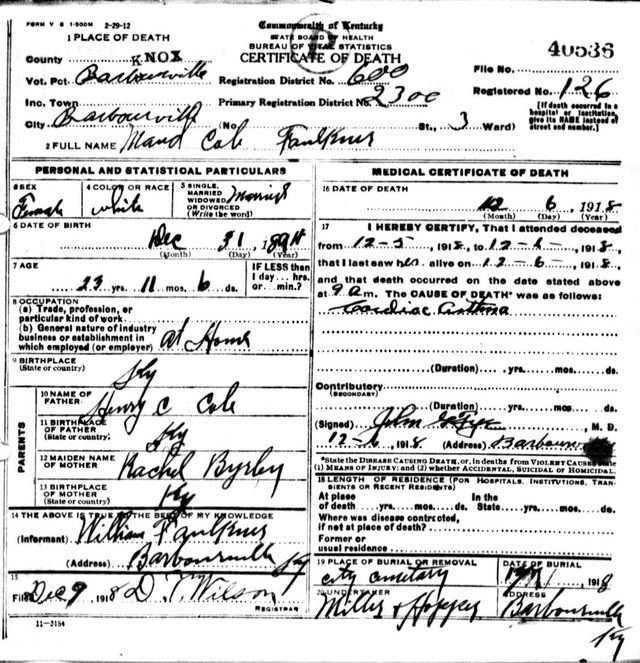 FORM V S 1-500M 2-29-12
Commonwealth of Kentucky
STATE BOARD OF HEALTH
BUREAU OF VITAL STATISTICS
CERTIFICATE OF DEATH
1 PLACE OF DEATH
County KNOX
Vot. Pct. Barbourville
Inc. Town
City Barbourville
Registration District No. 600
Primary Registration District No. 2300
File No. 40536
Registered No. 126
(No. St., 3 Ward)
[If death occurred in a hospital or institution, give its NAME instead of street and number.]
2 FULL NAME Maud Cole Faulkner
PERSONAL AND STATISTICAL PARTICULARS
3 SEX Female
4 COLOR OR RACE white
5 SINGLE, MARRIED WIDOWED OR DIVORCED (Write the word) Married
6 DATE OF BIRTH
Dec 31, 1894
(Month) (Day) (Year)
7 AGE
23 yrs. 11 mos. 6 ds.
IF LESS than 1 day... hrs. or... min.?
8 OCCUPATION
(a) Trade, profession, or particular kind of work
(b) General nature of industry business or establishment in which employed (or employer) at Home
9 BIRTHPLACE (State or country) Ky
PARENTS
10 NAME OF FATHER Henry C Cole
11 BIRTHPLACE OF FATHER (State or country) Ky
12 MAIDEN NAME OF MOTHER Rachel Byrley
13 BIRTHPLACE OF MOTHER (State or country) Ky
14 THE ABOVE IS TRUE TO THE BEST OF MY KNOWLEDGE
(Informant) William Faulkner
(Address) Barbourville Ky
15
Filed Dec 9, 1918 D. T. Wilson
REGISTRAR
11-3184
MEDICAL CERTIFICATE OF DEATH
16 DATE OF DEATH
12 6, 1918
(Month) (Day) (Year)
17 I HEREBY CERTIFY, That I attended deceased
from 12-5, 1918, to 12-6-, 1918,
that I last saw her alive on 12-6-, 1918,
and that death occurred on the date stated above
at 9 a m. The CAUSE OF DEATH* was as follows:
Cardiac Asthma
(Duration) yrs. mos. ds.
Contributory
(SECONDARY)
(Duration) yrs. mos. ds.
(Signed) John, M. D.
12-6, 1918 (Address)
*State the DISEASE CAUSING DEATH, or, in deaths from VIOLENT CAUSES state
(1) MEANS OF INJURY; and (2) whether ACCIDENTAL, SUICIDAL or HOMICIDAL.
18 LENGTH OF RESIDENCE (FOR HOSPITALS, INSTITUTIONS, TRANSIENTS OR RECENT RESIDENTS)
At place of death yrs. mos. ds. In the State yrs. mos. ds.
Where was disease contracted, if not at place of death?
Former or usual residence
19 PLACE OF BURIAL OR REMOVAL
city cemetary
DATE OF BURIAL
1918
20 UNDERTAKER
Miller & Hopper
ADDRESS
Barbourville Ky